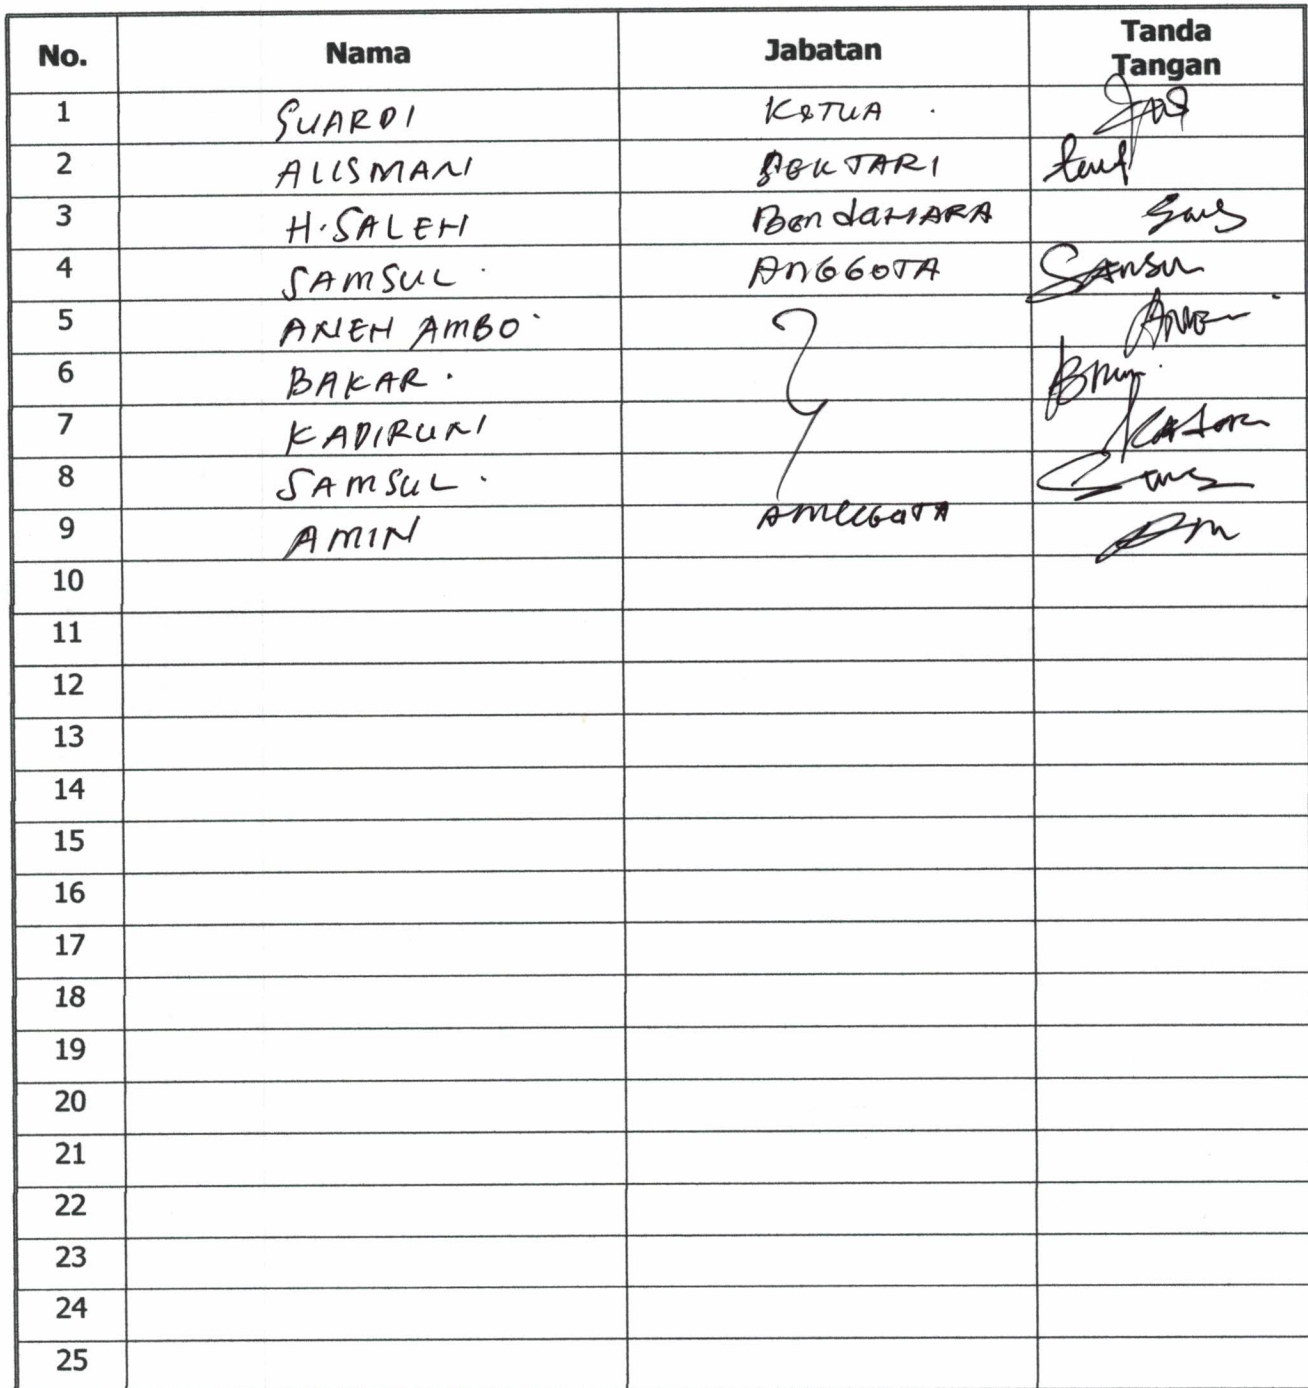 No. Nama Jabatan Tanda Tangan
1 SUARDI KETUA
2 ALISMAN SEKTARI
3 H. SALEH BendaHARA
4 SAMSUL ANGGOTA
5 ANEH AMBO
6 BAKAR
7 KADIRUN
8 SAMSUL
9 AMIN ANGGOTA
10
11
12
13
14
15
16
17
18
19
20
21
22
23
24
25